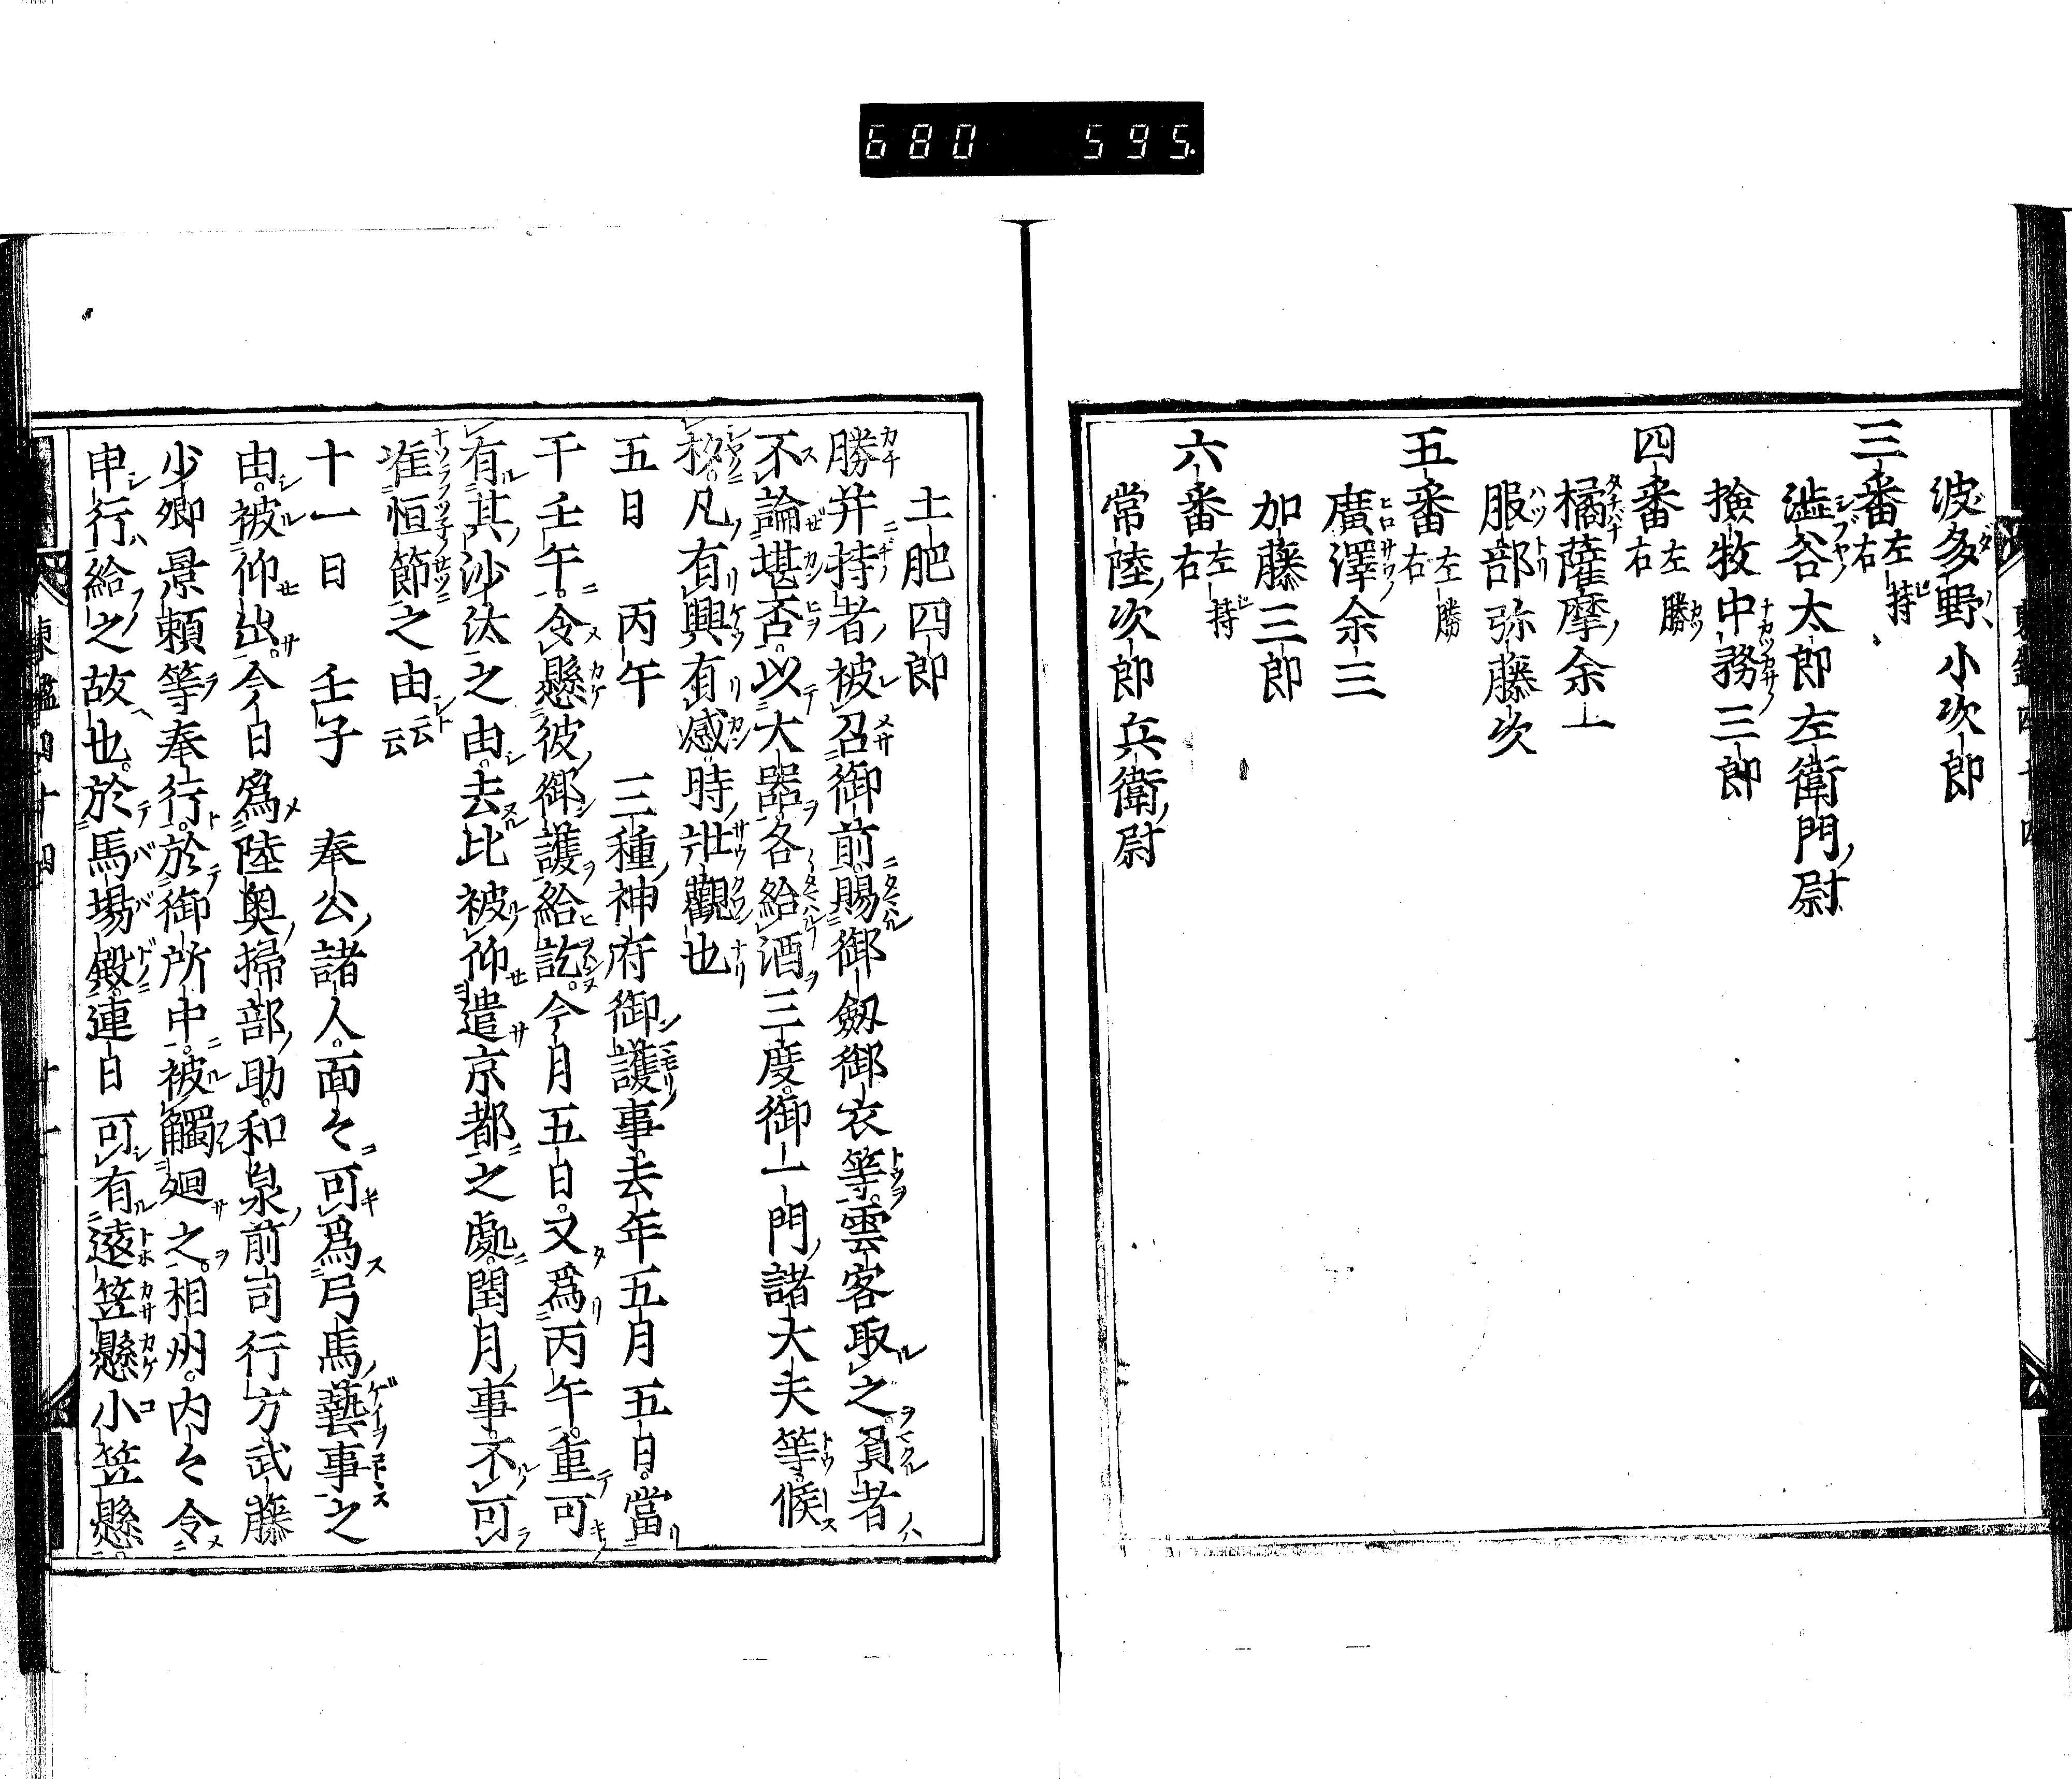 680 595.
波多野小次郎
三番 左持 右
澁谷太郎左衛門尉
撿牧中務三郎
四番 左勝 右
橘薩摩余一
服部弥藤次
五番 左勝 右
廣澤余三
加藤三郎
六番 左持 右
常陸次郎兵衛尉
土肥四郎
勝并持者被召御前賜御劔御衣等雲客取之負者
不論堪否以大器各給酒三度御一門諸大夫等候
杓凡有興有感時壯觀也
五日 丙午 三種神府御護事去年五月五日當
于壬午令懸彼御護給訖今月五日又爲丙午重可
有其沙汰之由去比被仰遣京都之處閏月事不可
准恒節之由云云
十一日 壬子 奉公諸人面〻可爲弓馬藝事之
由被仰出今日爲陸奥掃部助和泉前司行方武藤
少卿景頼等奉行於御所中被觸廻之相州内〻令
申行給之故也於馬場殿連日可有遠笠懸小笠懸